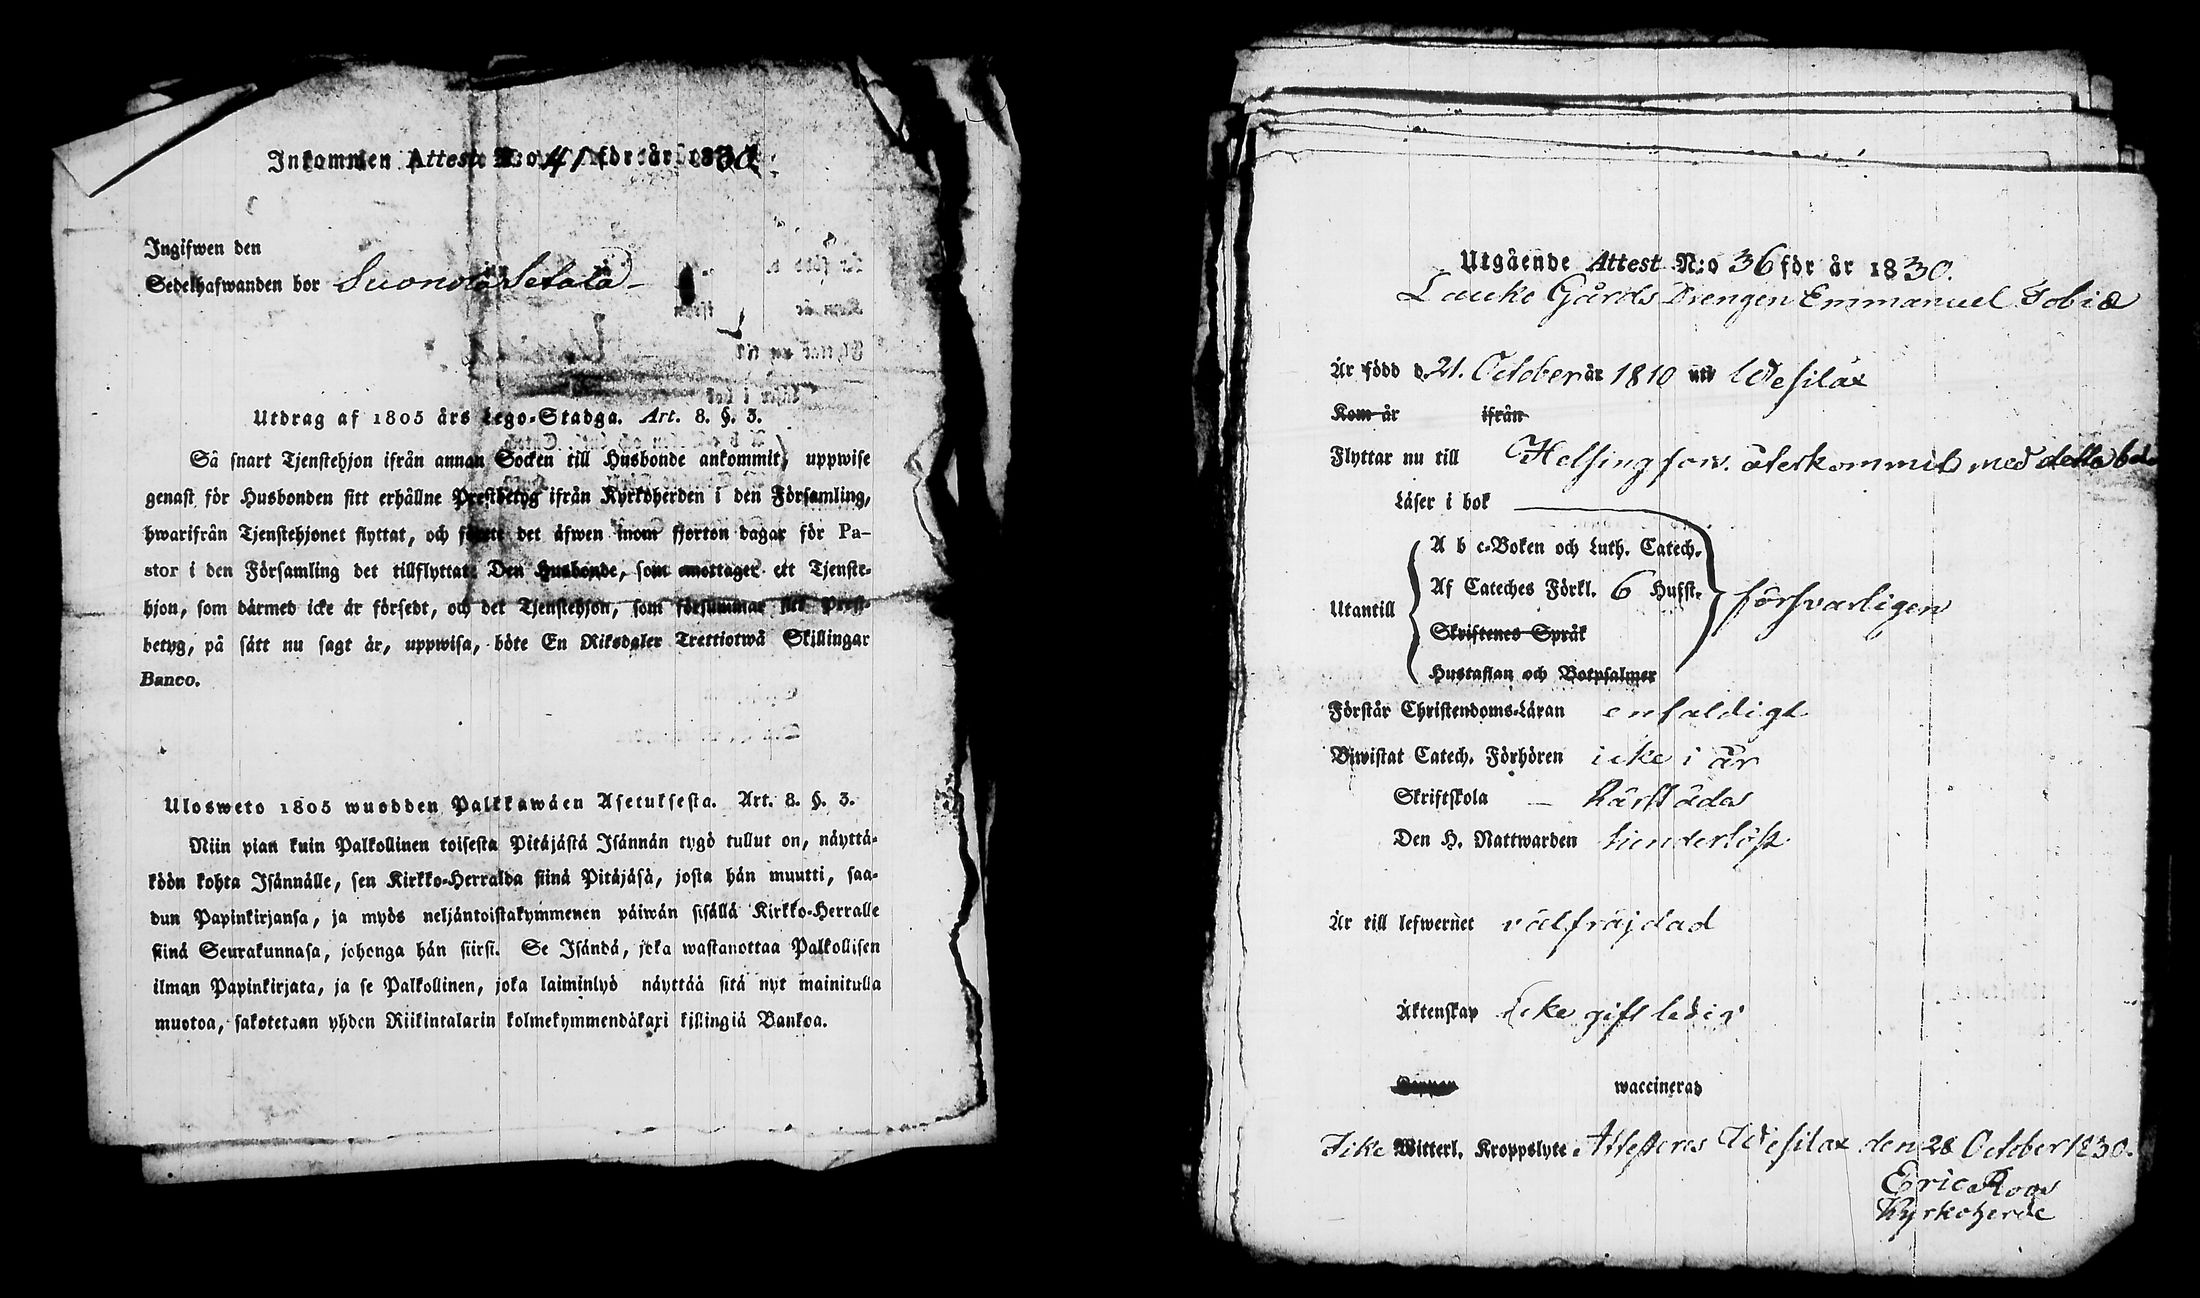 Inkommen Attest N:o 41 för år 1830.
Ingifwen den
Sedelhafwanden bor Suonola Setala
Utdrag af 1805 års Lego-Stadga. Art. 8. §. 3.
Så snart Tjenstehjon ifrån annan Socken till Husbonde ankommit, uppwise
genast för Husbonden sitt erhållne Prestbetyg ifrån Kyrkoherden i den Församling,
hwarifrån Tjenstehjonet flyttat, och förete det äfwen inom fjorton dagar för Pa-
stor i den Församling det tillflyttat. Den Husbonde, som emottager ett Tjenste-
hjon, som dermed icke är försedt, och det Tjenstehjon, som försummar sitt Prest-
betyg, på sätt nu sagt är, uppwisa, böte En Riksdaler Trettiotwå Skillingar
Banco.
Ulosweto 1805 wuodden Palkkawäen Asetuksesta. Art. 8. §. 3.
Niin pian kuin Palkollinen toisesta Pitäjästä Isännän tygö tullut on, näyttä-
köön kohta Isännälle, sen Kirkko-Herralda siinä Pitäjäsä, josta hän muutti, saa-
dun Papinkirjansa, ja myös neljäntoistakymmenen päiwän sisällä Kirkko-Herralle
siinä Seurakunnasa, johonga hän siirsi. Se Isändä, joka wastanottaa Palkollisen
ilman Papinkirjata, ja se Palkollinen, joka laiminlyö näyttää sitä nyt mainitulla
muotoa, sakotetaan yhden Riikintalarin kolmekymmendäkaxi killingiä Bankoa.
Utgående Attest N:o 36 för år 1830.
Lauko Gårds Drengen Emmanuel Tobia
Är född d. 21. October år 1810 uti Wesilax
Kom år ifrån
Flyttar nu till Helsingfors. återkommit med detta
Läser i bok
A b c-Boken och Luth. Catech.
Af Cateches Förkl. 6 Hufst.
Utantill försvarligen
Skriftenes Språk
Hustaflan och Botpsalmer
Förstår Christendoms-Läran enfaldigt
Biwistat Catech. Förhören icke i år
Skriftskola — härstädes
Den H. Nattwarden hinderlöst
Är till lefwernet välfräjdad
Äktenskap icke gift ledig
waccinerad
Icke Witterl. Kroppslyte Attesteras Wesilax den 28 October 1830.
Eric Roos
Kyrkoherde